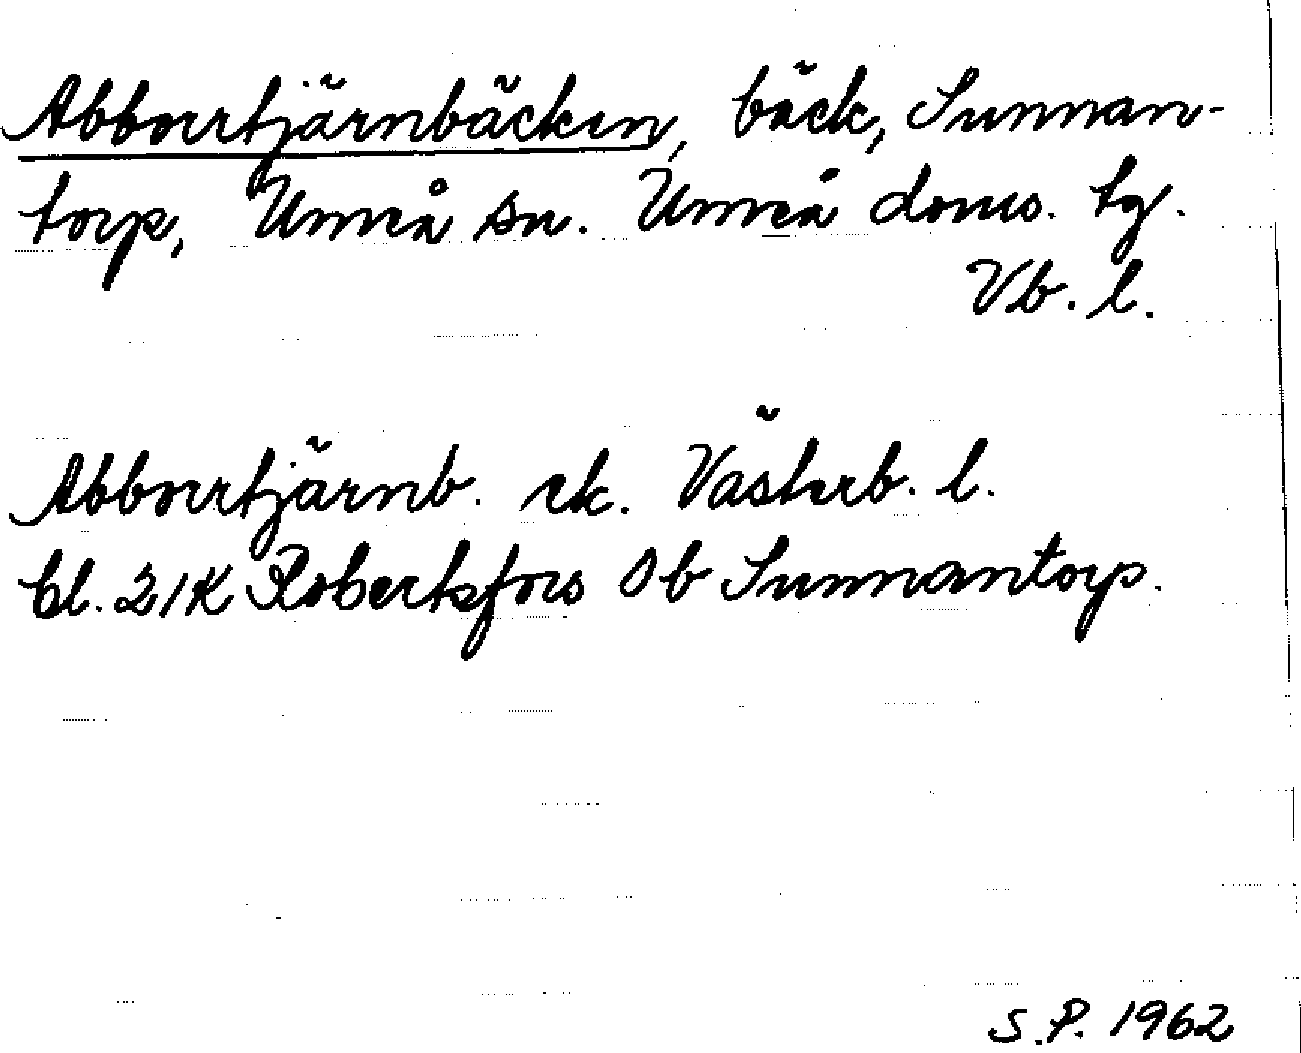 Abborrtjärnbäcken, bäck, Sunnan-
torp, Umeå sn. Umeå doms. tg.
Vb. l.
Abborrtjärnb. ek. Västerb. l.
bl. 21K Robertsfors Ob Sunnantorp.
S.P. 1962